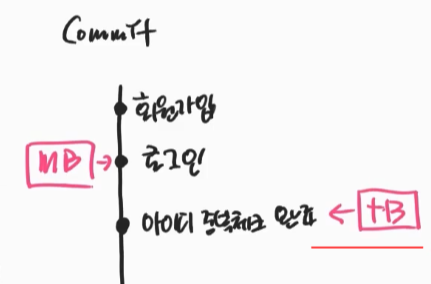 Commit
회원가입
MB → 로그인
아이디 중복체크 완료 ← +B